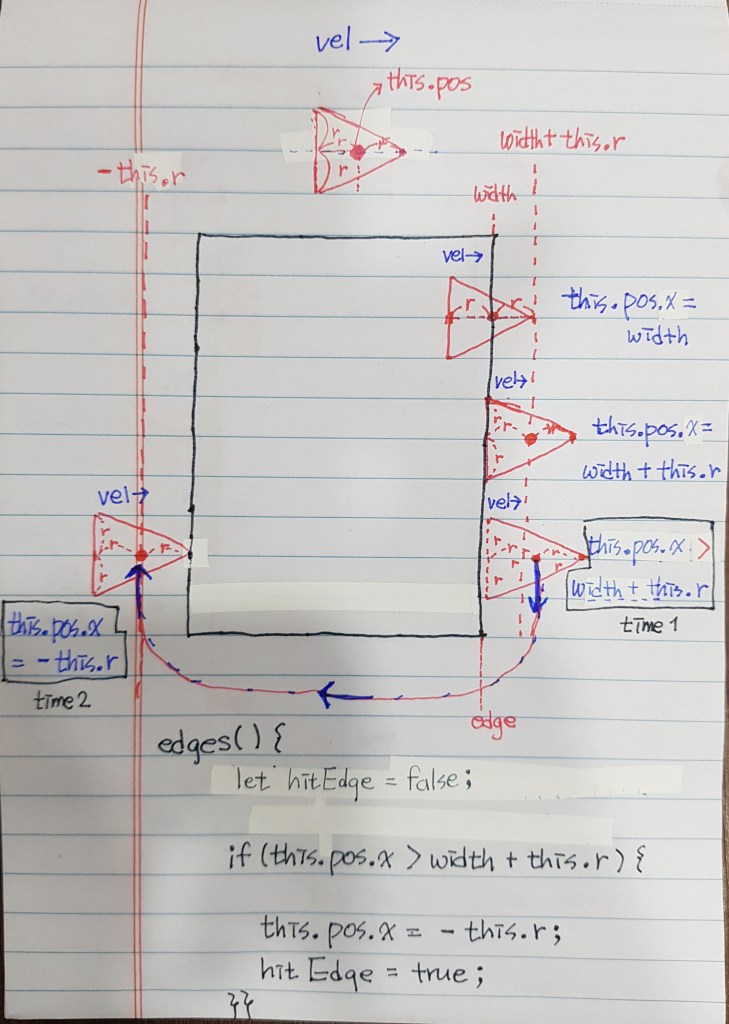 vel →
this.pos
r r r
r
width + this.r
- this.r
width
vel→
r r
this.pos.x =
width
vel→
r r r
r
this.pos.x =
width + this.r
vel→
r r r
r
this.pos.x >
width + this.r
time 1
vel→
r r r
r
this.pos.x
= - this.r
time 2
edge
edges() {
let hitEdge = false;
if (this.pos.x > width + this.r) {
this.pos.x = - this.r;
hit Edge = true;
}}